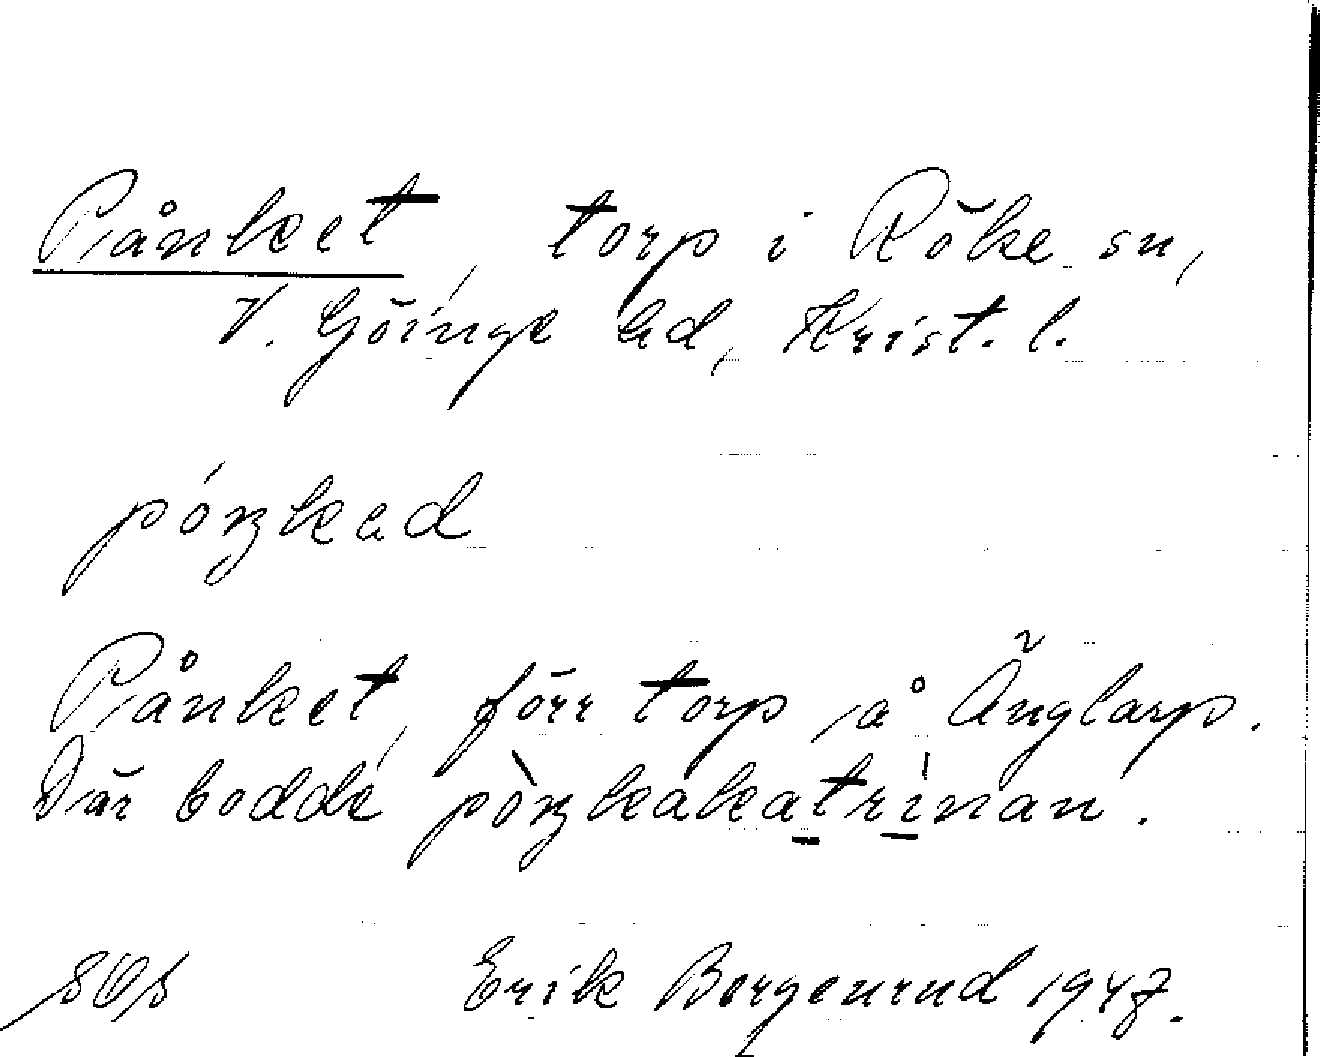 Pånket, torp i Röke sn,
V. Göinge hd, Krist. l.
póŋkad
Pånket, förr torp på Änglarp.
Där bodde pòŋkakatrìnan.
Erik Borgenrud 1947.